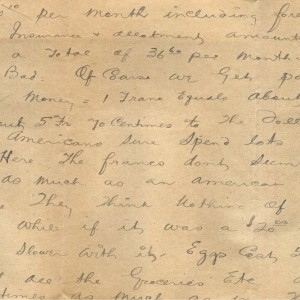 per Month including for
Insurance & allotment amount
a Total of 36 60 per Month
Bad. Of Caurse we Get pa
Money = 1 Franc Equals About
5 Fr 70 Centimes to The Doll
Americans sure Spend lots
Here The francs dont seem
as Much as an american
They Think Nothing of
While if it was a $20 00
slower with it. Eggs Cost 5
all the Groceries Etc
times as Much as in